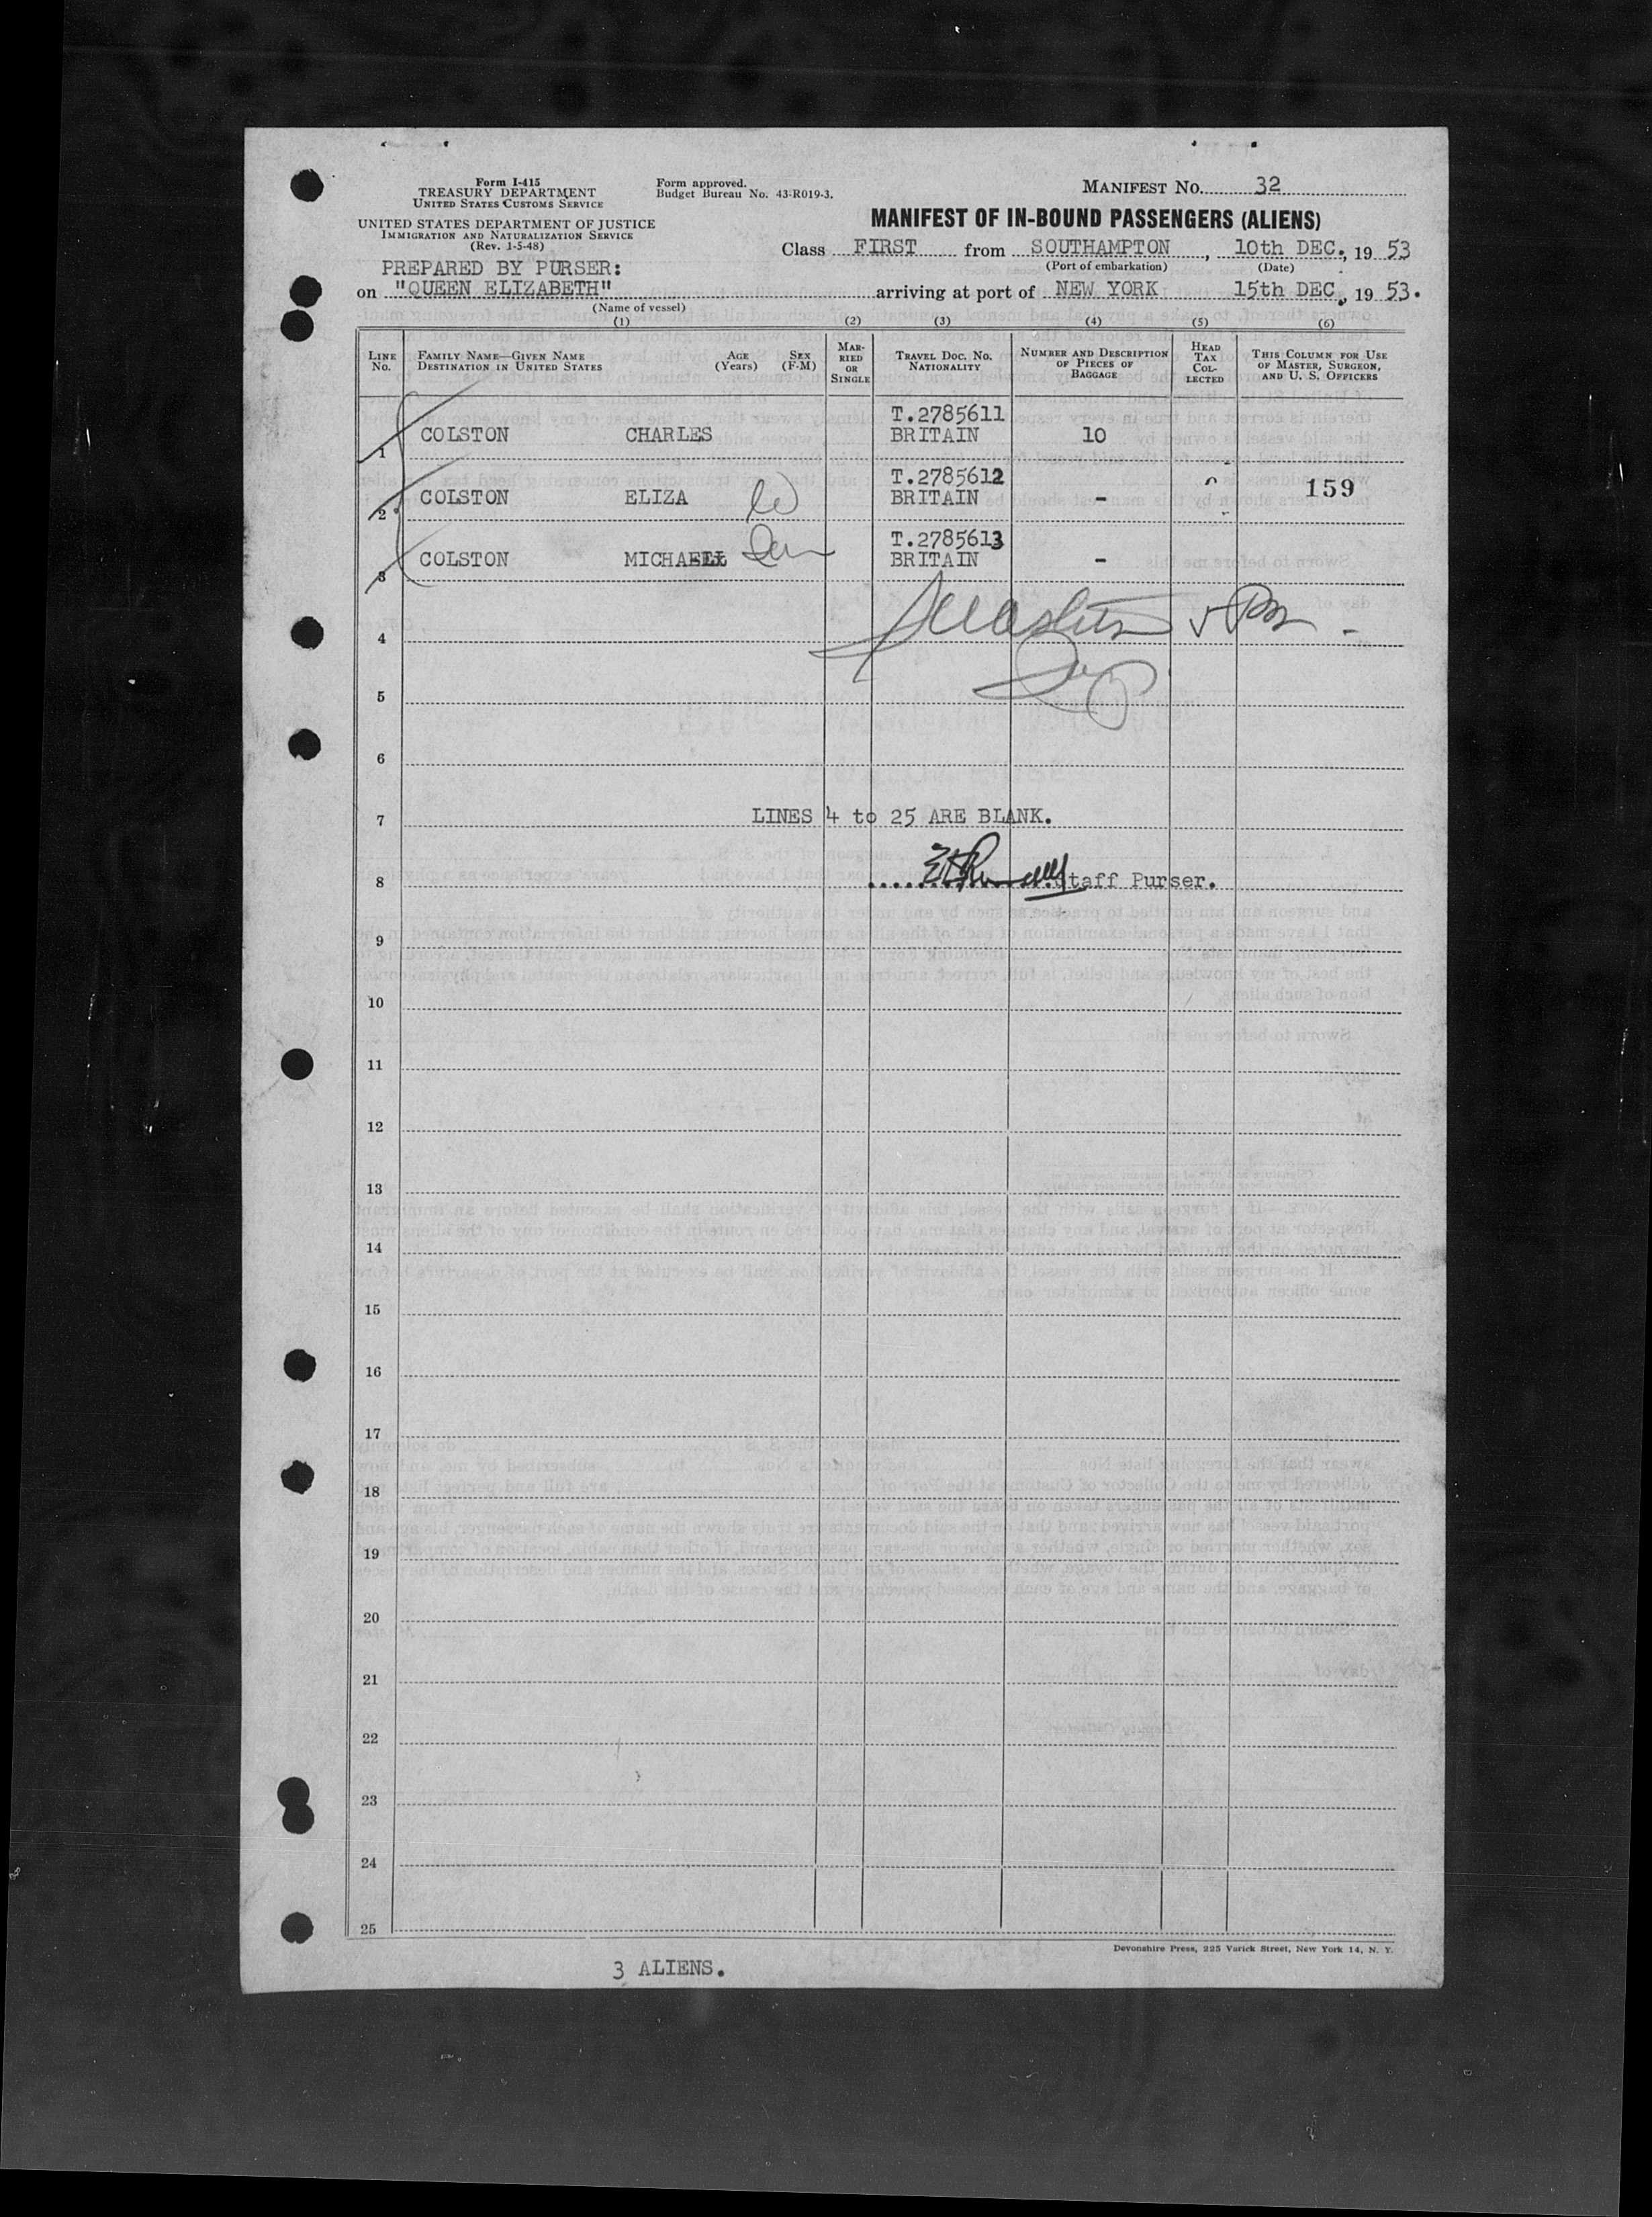 Form I-415
TREASURY DEPARTMENT
UNITED STATES CUSTOMS SERVICE
UNITED STATES DEPARTMENT OF JUSTICE
IMMIGRATION AND NATURALIZATION SERVICE
(Rev. 1-5-48)
Form approved.
Budget Bureau No. 43-R019-3.
MANIFEST NO. 32
MANIFEST OF IN-BOUND PASSENGERS (ALIENS)
Class FIRST from SOUTHAMPTON, 10th DEC., 19 53
(Port of embarkation) (Date)
PREPARED BY PURSER:
on "QUEEN ELIZABETH" arriving at port of NEW YORK 15th DEC., 19 53.
(Name of vessel)
(1) (2) (3) (4) (5) (6)
LINE No. FAMILY NAME—GIVEN NAME DESTINATION IN UNITED STATES AGE (Years) SEX (F-M) MARRIED OR SINGLE TRAVEL DOC. NO. NATIONALITY NUMBER AND DESCRIPTION OF PIECES OF BAGGAGE HEAD TAX COLLECTED THIS COLUMN FOR USE OF MASTER, SURGEON, AND U. S. OFFICERS
T.2785611
1 COLSTON CHARLES BRITAIN 10
T.2785612
2 COLSTON ELIZA BRITAIN - 159
T.2785613
3 COLSTON MICHAEL BRITAIN -
4
5
6
7 LINES 4 to 25 ARE BLANK.
8 Staff Purser.
9
10
11
12
13
14
15
16
17
18
19
20
21
22
23
24
25
Devonshire Press, 225 Varick Street, New York 14, N. Y.
3 ALIENS.